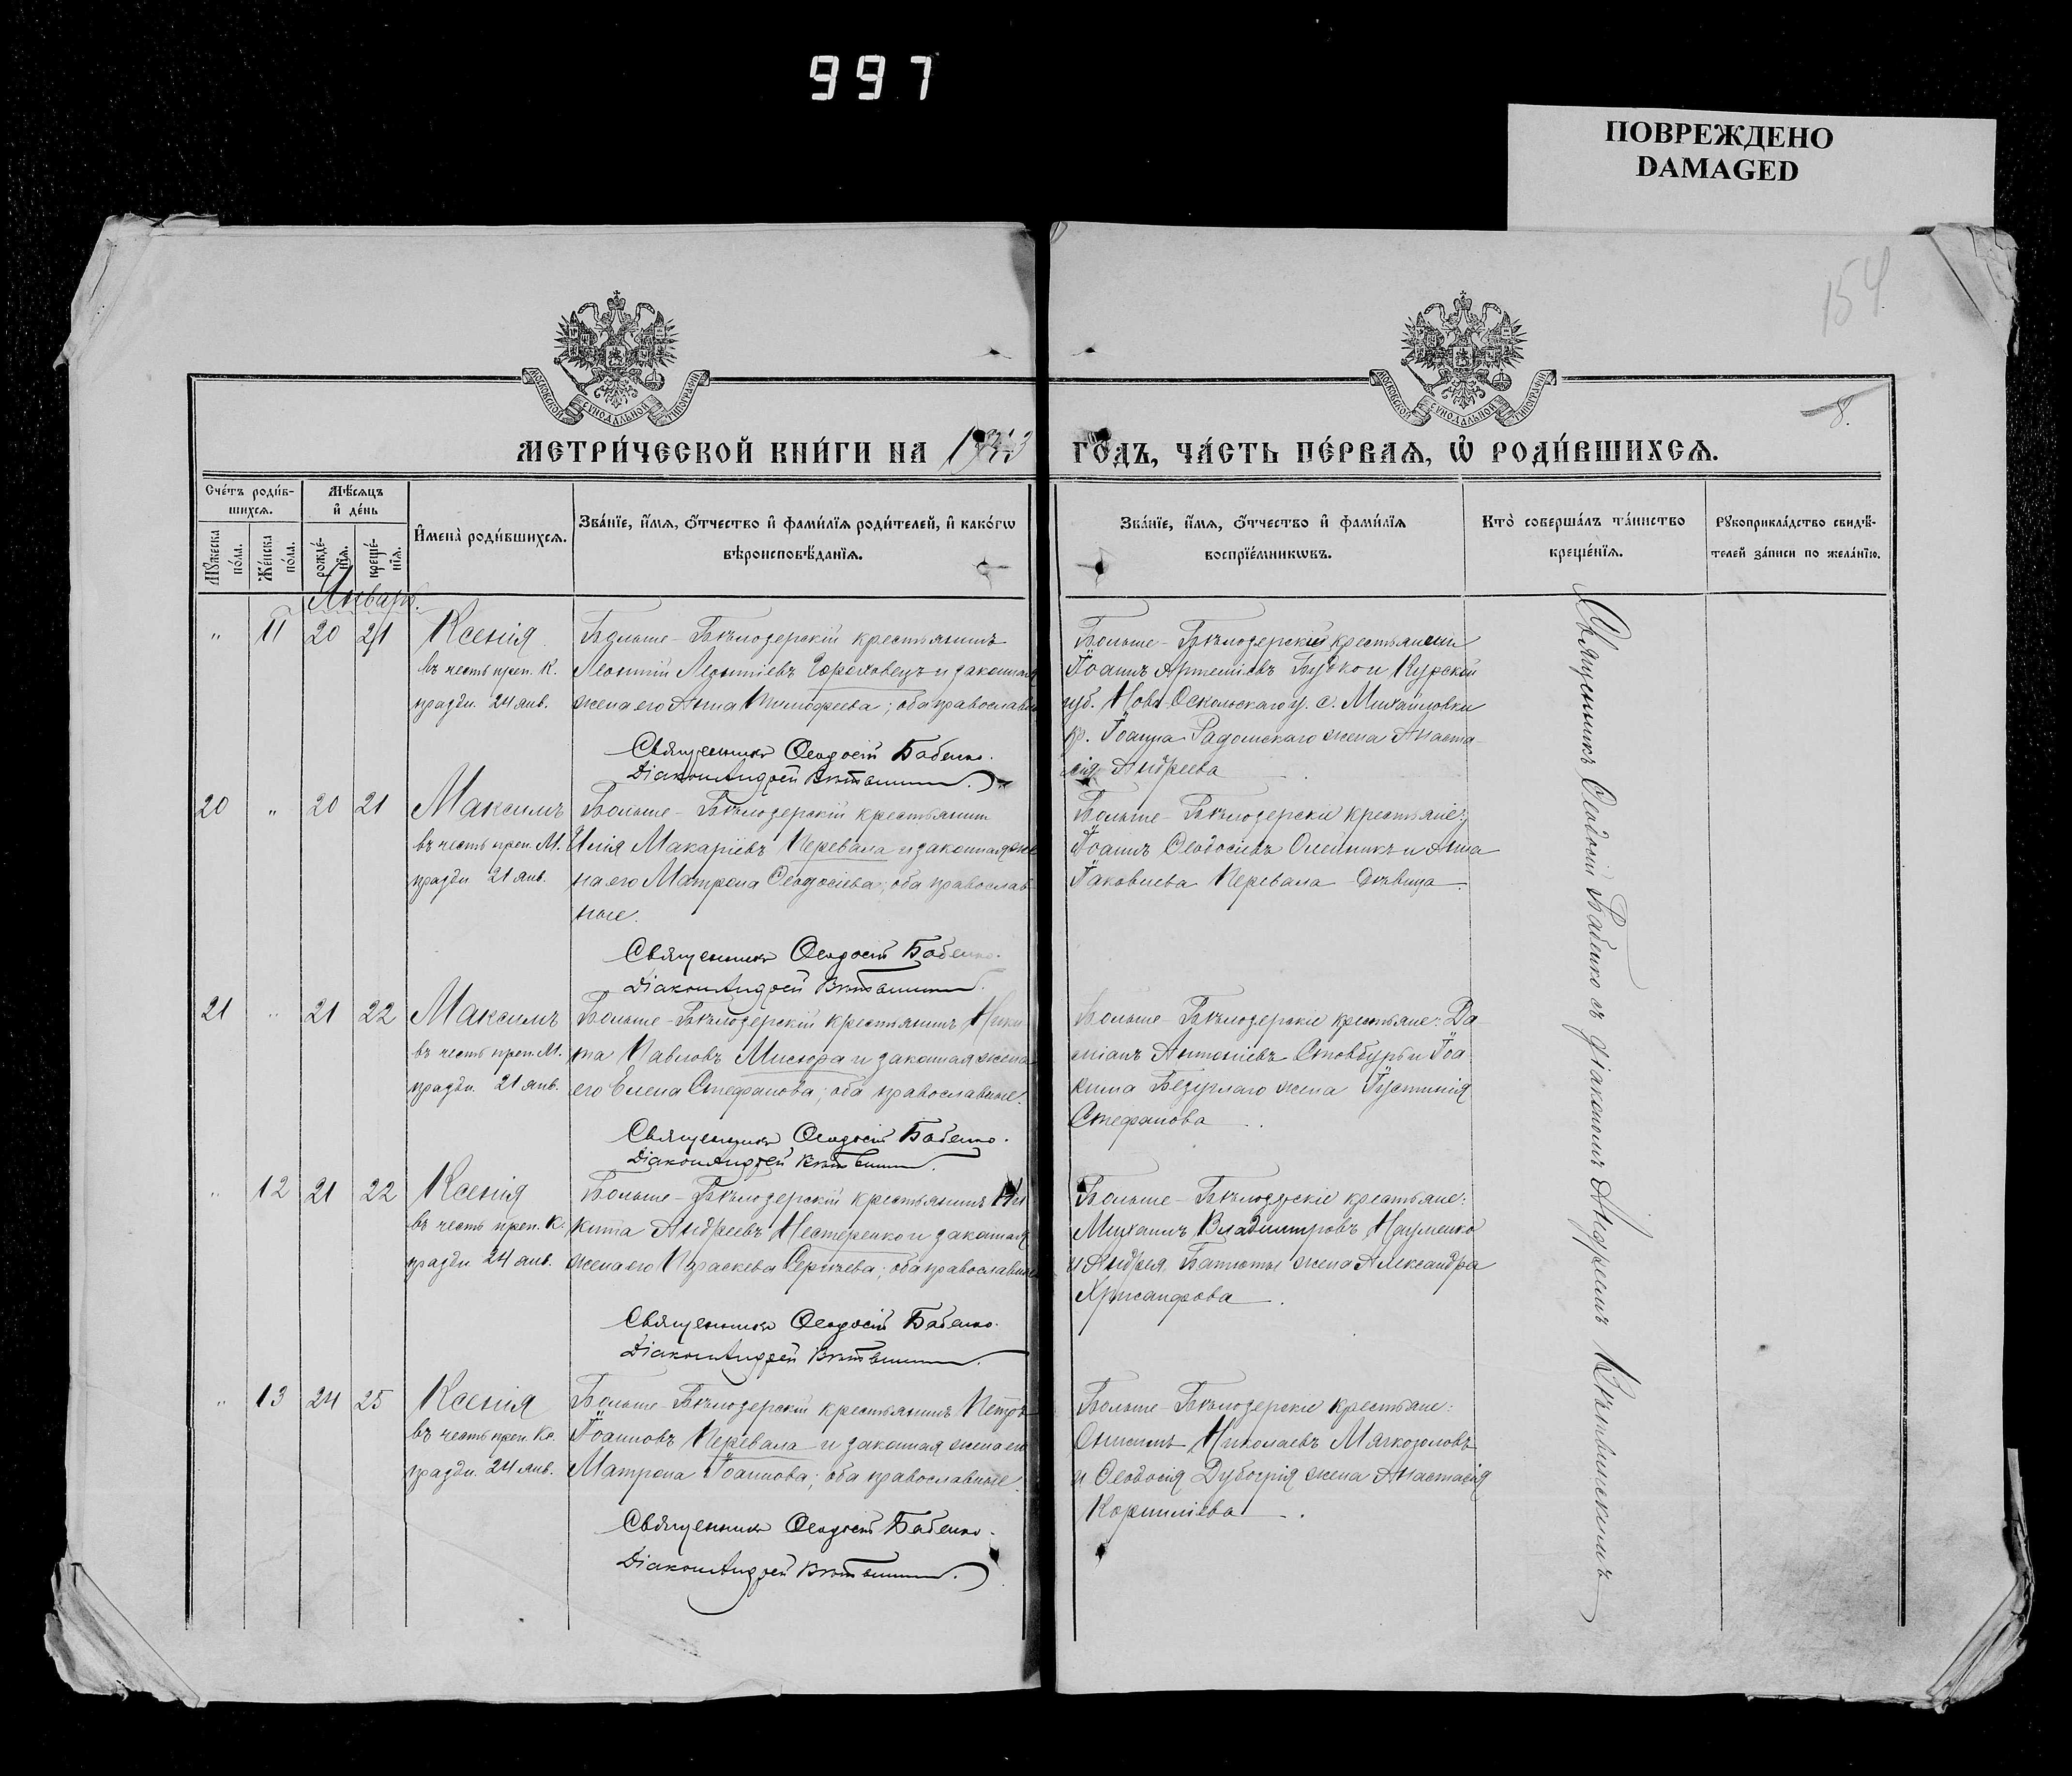 997
ПОВРЕЖДЕНО
DAMAGED
154
МОСКОВСКОЙ СѴНОДАЛЬНОЙ ТИПОГРАФІИ
МОСКОВСКОЙ СѴНОДАЛЬНОЙ ТИПОГРАФІИ
8.
МЕТРИ́ЧЕСКОЙ КНИ́ГИ НА
ГОДЪ, ЧА́СТЬ ПЕ́РВАѦ, Ѡ҆ РОДИ́ВШИХСѦ.
Сче́тъ роди́в-
шихсѧ.
Мѣ́сѧцъ
и҆ де́нь
Мꙋ́жеска
по́ла.
Же́нска
по́ла.
рожде́-
нїѧ.
креще́-
нїѧ.
И҆мена̀ роди́вшихсѧ.
Зва́нїе, и҆́мѧ, ѻ҆́тчество и҆ фами́лїѧ роди́телей, и҆ како́гѡ
вѣроисповѣ́данїѧ.
Зва́нїе, и҆́мѧ, ѻ҆́тчество и҆ фами́лїѧ
воспрїе́мникѡвъ.
Кто̀ соверша́лъ та́инство
креще́нїѧ.
Рꙋкоприкла́дство свидѣ́-
телей за́писи по жела́нїю.
Январь.
" 11 20 21 Ксенія
въ честь преп. К.
праздн. 24 янв.
Больше-Бѣлозерскій крестьянинъ
Леонтій Леонтіевъ Гороховецъ и законная
жена его Анна Тимофеева; оба православн
Священникъ Ѳеодосій Бабенко.
Діаконъ Андрей
Больше-Бѣлозерскій крестьянинъ
Іоаннъ Артеміевъ Бутко и Курской
губ. Ново-Оскольскаго у. с. Михайловки
кр. Іоанна Радомскаго жена Анаста-
сія Андреева
20 " 20 21 Максимъ
въ честь преп. М.
праздн. 21 янв.
Больше-Бѣлозерскій крестьянинъ
Илія Макаріевъ Перевала и законная же
на его Матрона Ѳеодосіева; оба православ-
ные.
Священникъ Ѳеодосій Бабенко.
Діаконъ Андрей
Больше-Бѣлозерскіе крестьяне:
Іоаннъ Ѳеодосіевъ Олейникъ и Анна
Іаковлева Перевала дѣвица
21 " 21 22 Максимъ
въ честь преп. М.
праздн. 21 янв.
Больше-Бѣлозерскій крестьянинъ Ники
та Павловъ Мисюра и законная жена
его Елена Стефанова; оба православные.
Священникъ Ѳеодосій Бабенко.
Діаконъ Андрей
Больше-Бѣлозерскіе крестьяне: Да
міанъ Антоніевъ Стовбуръ и Іоа
кима Безуглаго жена Іустинія
Стефанова
" 12 21 22 Ксенія
въ честь преп. К.
праздн. 24 янв.
Больше-Бѣлозерскій крестьянинъ Ни
кита Андреевъ Нестеренко и законная
жена его Параскева Сергѣева; оба православные
Священникъ Ѳеодосій Бабенко.
Діаконъ Андрей
Больше-Бѣлозерскіе крестьяне:
Михаилъ Владимировъ Науменко
и Андрея Батюты жена Александра
Хрисанфова
" 13 24 25 Ксенія
въ честь преп. Кс.
праздн. 24 янв.
Больше-Бѣлозерскій крестьянинъ Петръ
Іоанновъ Перевала и законная жена его
Матрона Іоаннова; оба православные.
Священникъ Ѳеодосій Бабенко.
Діаконъ Андрей
Больше-Бѣлозерскіе крестьяне:
Онисимъ Николаевъ Мягкоголовъ
и Ѳеодосія жена Анастасія
Корниліева
Священникъ Ѳеодосій Бабенко съ діакономъ Андреемъ